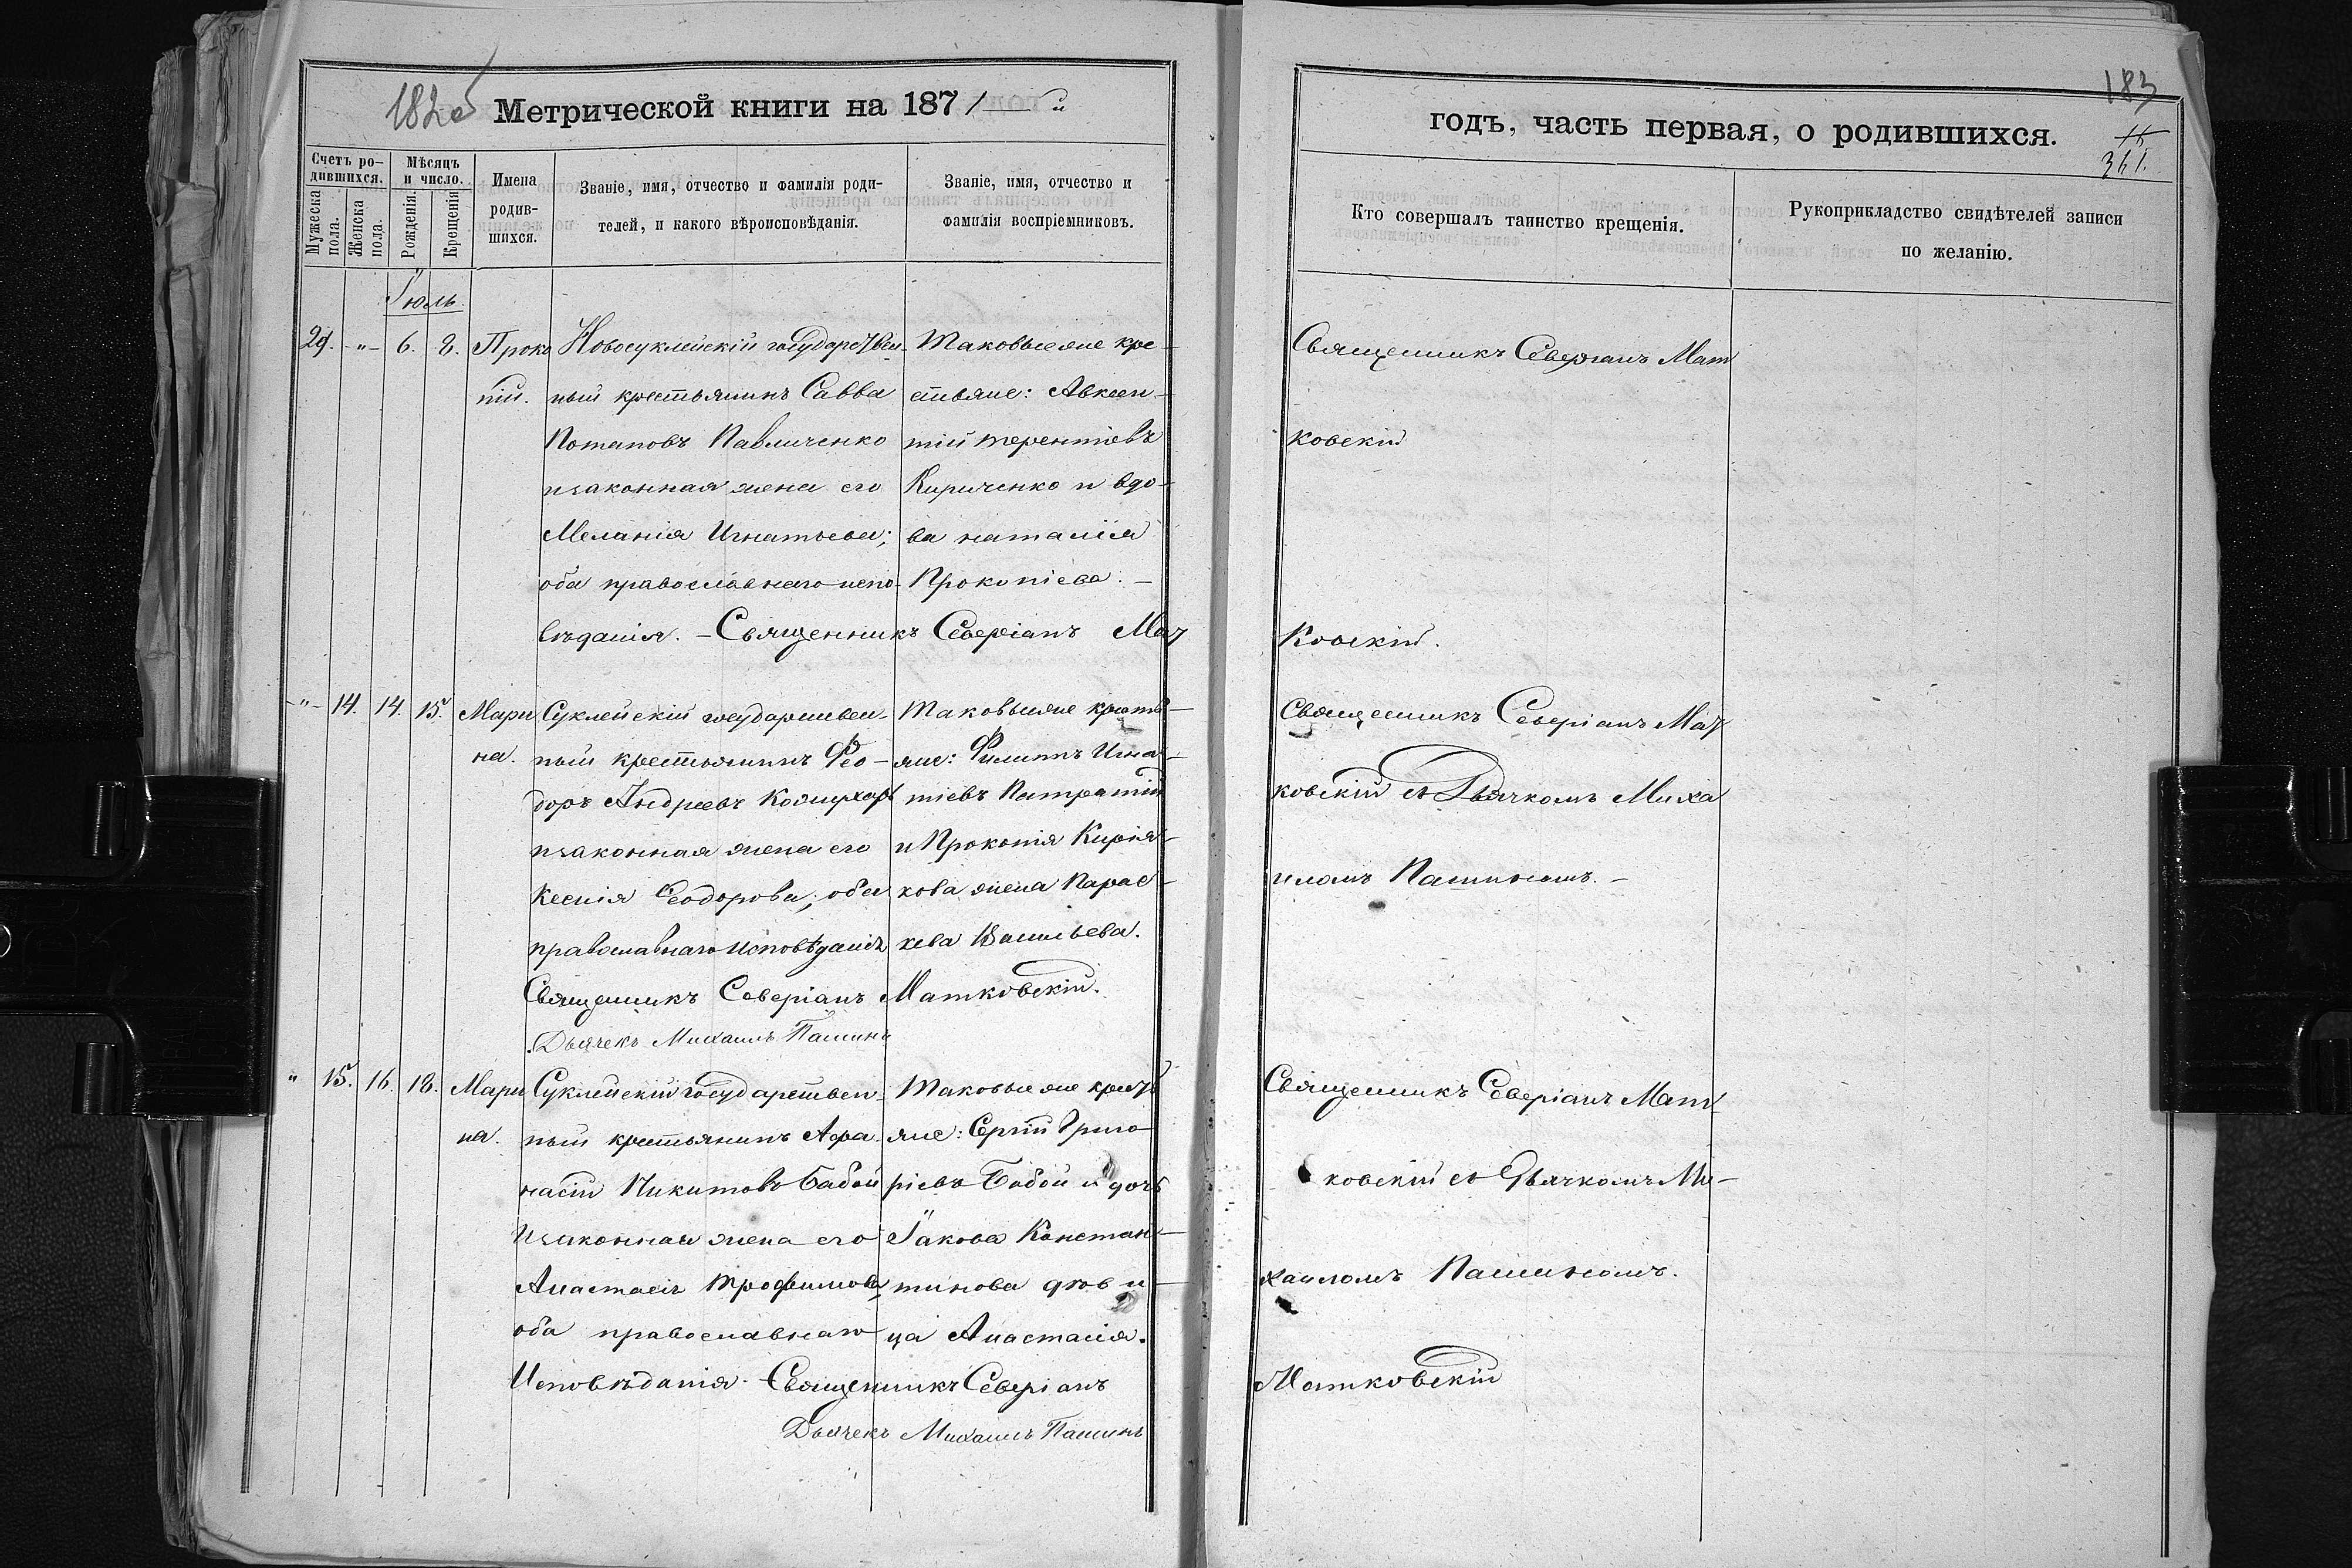 182об
Метрической книги на 1871-й
Счетъ ро-
дившихся.
Мужеска пола.
Женска пола.
Мѣсяцъ
и число.
Рожденія.
Крещенія.
Имена
родив-
шихся.
Званіе, имя, отчество и фамилія роди-
телей, и какого вѣроисповѣданія.
Званіе, имя, отчество и
фамилія воспріемниковъ.
Іюль.
29. -"- 6. 8. Проко
пій.
Новосуклейскій государствен-
ный крестьянинъ Савва
Потаповъ Павличенко
изаконная жена его
Меланія Игнатьева;
оба православнаго испо-
вѣданія. - Священникъ Северіанъ Мат
Таковыеже кре-
стьяне: Авксен-
тій Терентіевъ
Кириченко и вдо-
ва Наталія
Прокопіева. -
-"- 14. 14. 15. Мари
на.
Суклейскій государствен-
ный крестьянинъ Фео-
доръ Андреевъ
изаконная жена его
Ксенія Феодорова; оба
православнаго исповѣданія
Священникъ Северіанъ Матковскій.
Дьячекъ Михаилъ Пашинъ
Таковыеже кресть-
яне: Филиппъ Игна-
тіевъ
и Прокопія Кирія-
кова жена Парас-
кева Васильева.
" 15. 16. 18. Мари
на.
Суклейскій государствен-
ный крестьянинъ Афа-
насій Никитовъ Бабой
изаконная жена его
Анастасія Трофимова,
оба православнаго
Исповѣданія. - Священникъ Северіанъ
Дьячекъ Михаилъ Пашинъ
Таковыеже кресть
яне: Сергій Григо
ріевъ Бабой и дочь
Іакова Констан-
тинова дѣви-
ца Анастасія.
183
361.
годъ, часть первая, о родившихся.
Кто совершалъ таинство крещенія.
Рукоприкладство свидѣтелей записи
по желанію.
Священникъ Северіанъ Мат
ковскій
ковскій.
Священникъ Северіанъ Мат
ковскій съ Дьячкомъ Миха
иломъ Пашинымъ. -
Священникъ Северіанъ Мат-
ковскій съ Дьячкомъ Ми-
хаиломъ Пашинымъ.
Матковскій